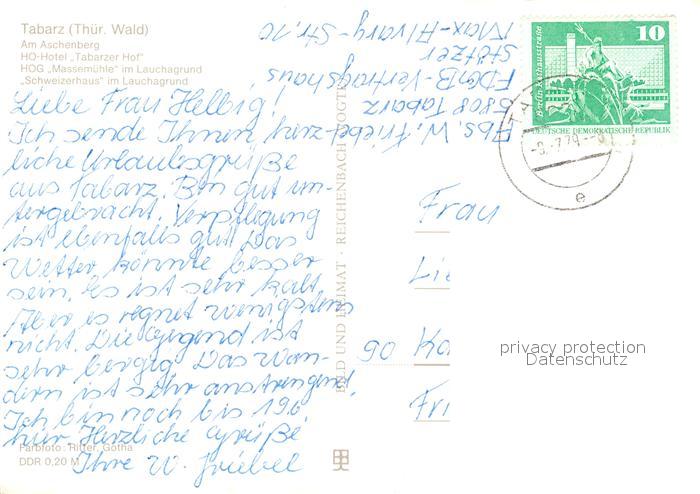 Tabarz (Thür. Wald)
Am Aschenberg
HO-Hotel „Tabarzer Hof"
HOG „Massemühle" im Lauchagrund
„Schweizerhaus" im Lauchagrund
Liebe Frau Helbig
Ich sende Ihnen herz-
liche Urlaubsgrüße
aus Tabarz. Bin gut un-
tergebracht. Verpflegung
ist ebenfalls gut. Das
Wetter könnte besser
sein. Es ist sehr kalt.
Aber es regnet wenigstens
nicht. Die Gegend ist
sehr bergig. Das Wan-
dern ist sehr anstrengend.
Ich bin noch bis 19.6.
hier. Herzliche Grüße
Ihre W. Friebel
Farbfoto: Ritter, Gotha
DDR 0,20 M
BILD UND HEIMAT · REICHENBACH VOGTL
Abs. W. Friebel
5808 Tabarz
FDGB-Vertragshaus
Stötzer
Max-Alvary-Str. 10
Berlin, Rathausstraße
10
DEUTSCHE DEMOKRATISCHE REPUBLIK
e
Frau
Lie
90 Ka
Fri
privacy protection
Datenschutz